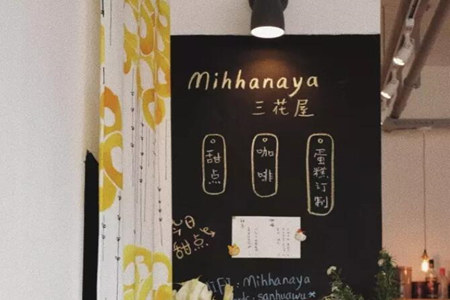 Mihhanaya
三花屋
甜点
咖啡
蛋糕订制
今日
甜点
WiFi: Mihhanaya
sanhuawu